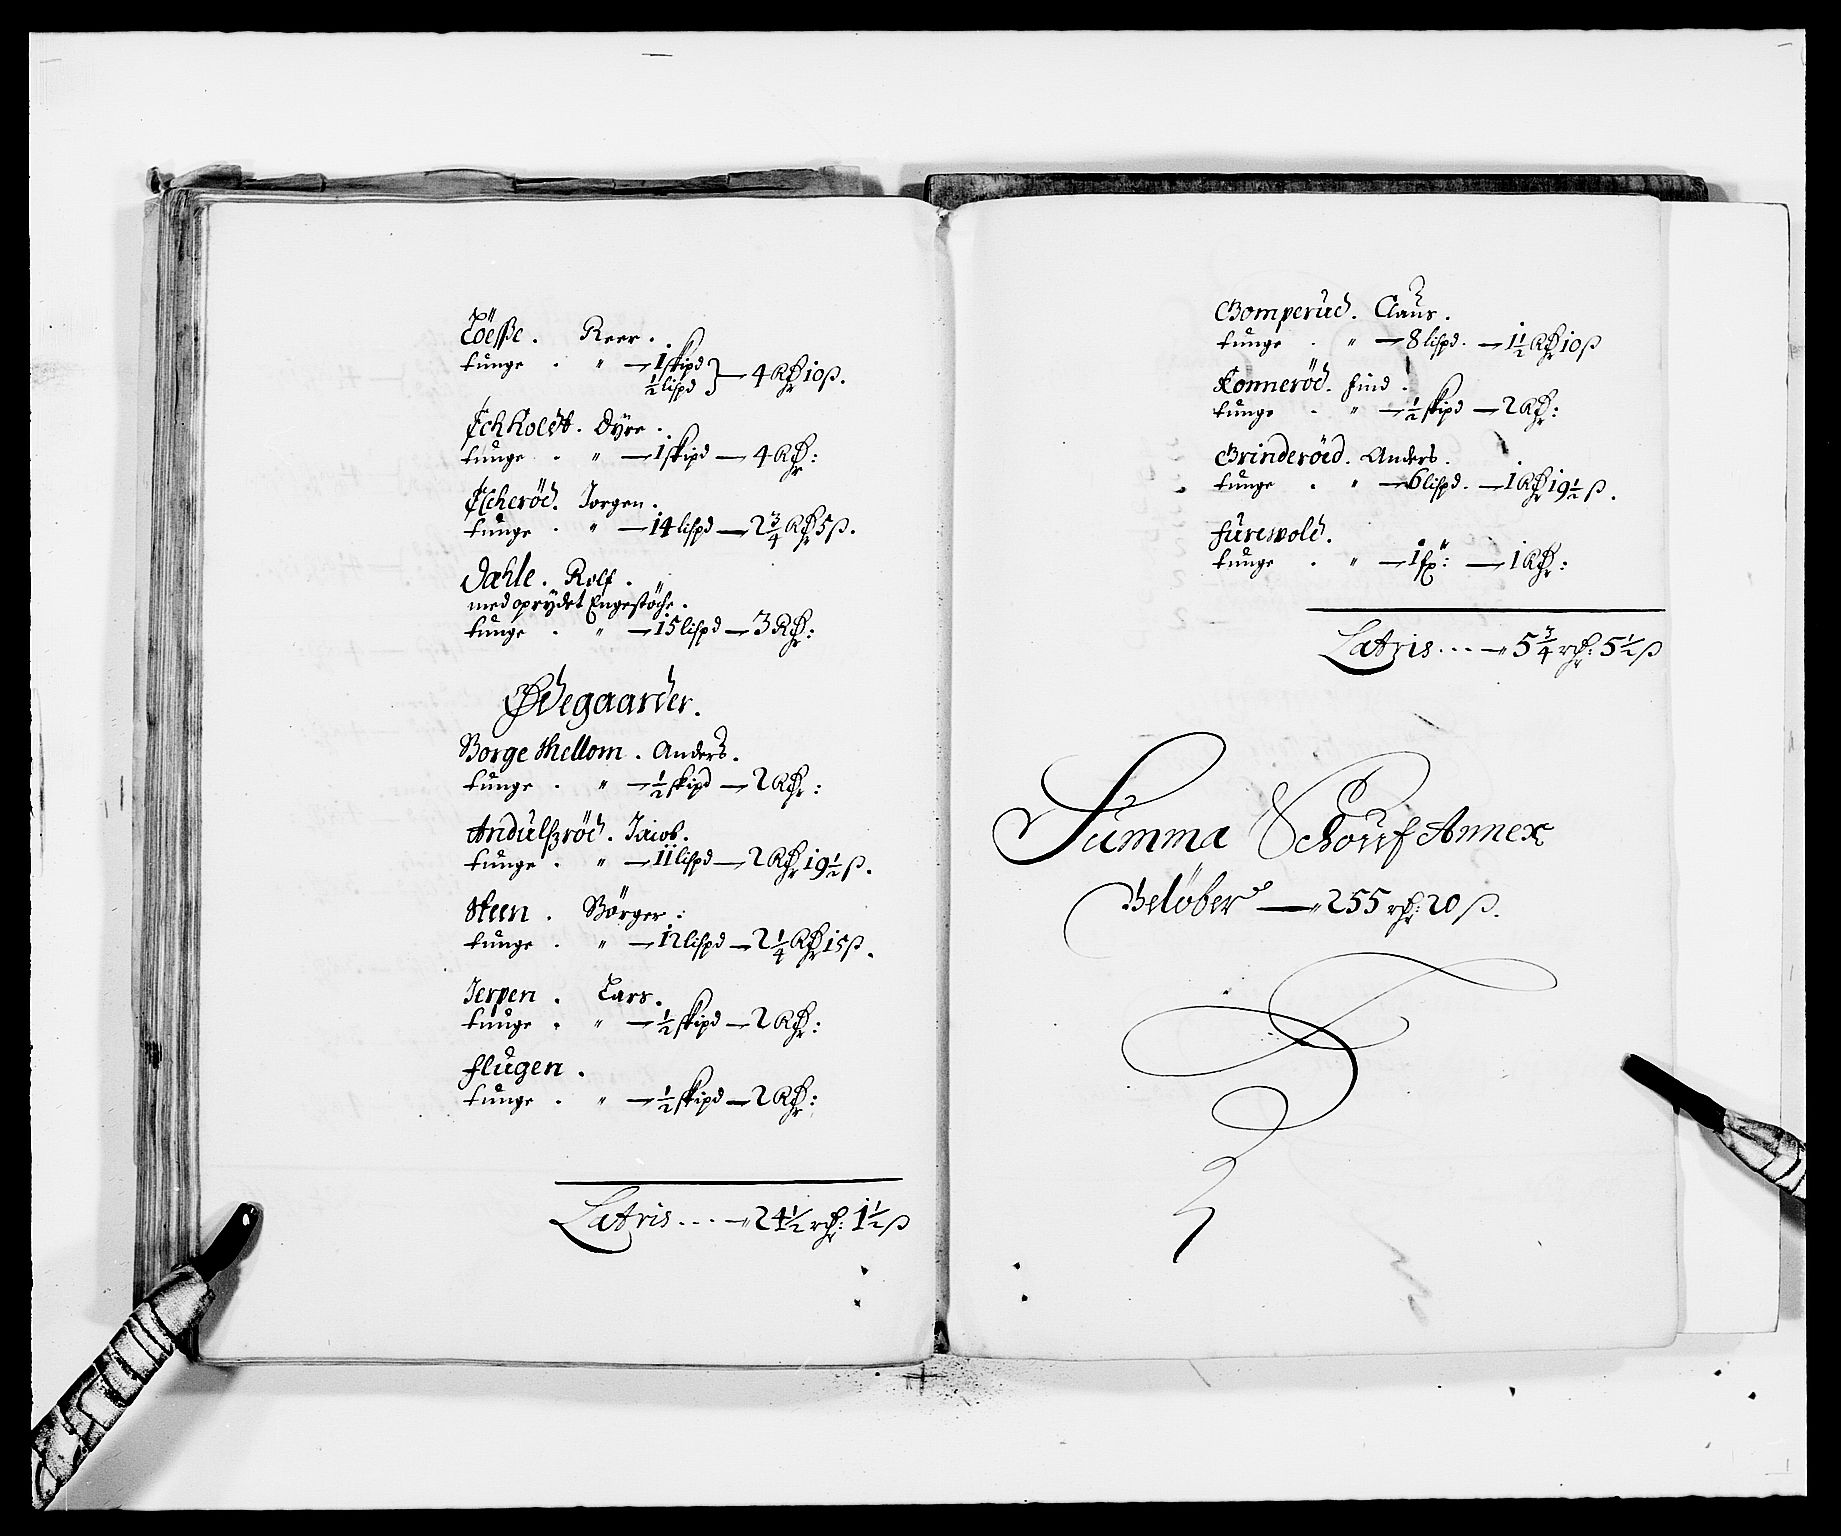 Töesße . Reer .
tunge . " — 1 skipd
½ lispd } — 4 Rdr 10 ß.
Echholdt . Dyre .
tunge . " — 1 skipd — 4 Rdr:
Echeröd . Jorgen .
tunge . " — 14 lispd — 2¾ Rdr 5 ß.
Dahle . Rolf .
med oprÿdet Engestöche .
tunge . " — 15 lispd — 3 Rdr:
Ødegaarder.
Borge Mellom . Anders .
tunge . " — ½ skipd — 2 Rdr:
Andulßröd . Jacob .
tunge . " — 11 lispd — 2 Rdr 19½ ß.
Steen . Börger :
tunge . " — 12 lispd — 2¼ Rdr 15 ß.
Jerpen . Lars .
tunge . " — ½ skipd — 2 Rdr:
flugen .
tunge . " — ½ skipd — 2 Rdr:
Latris . . . — 24½ rdr: 1½ ß
Gomperud . Claus .
tunge . " — 8 lispd . — 1½ Rdr 10 ß
Konneröd . find .
tunge . " — ½ skipd — 2 Rdr:
Grinderöed . Anders .
tunge . " — 6 lispd . — 1 Rdr 19½ ß.
furevold .
tunge . " — 1 fx: — 1 Rdr:
Latris . . . — 5¾ rdr: 5½ ß
Summa Schouf Annex
Belöber — 255 rdr: 20 ß.